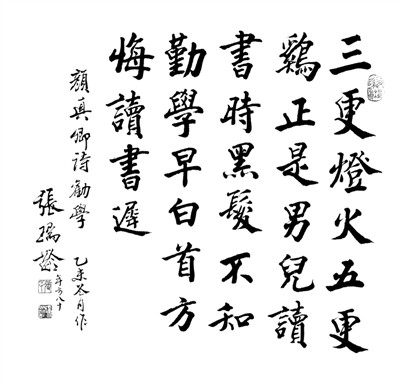 三更燈火五更
鷄正是男兒讀
書時黑髮不知
勤學早白首方
悔讀書遲
顏真卿詩勸學
乙未冬月作
張瑞齡